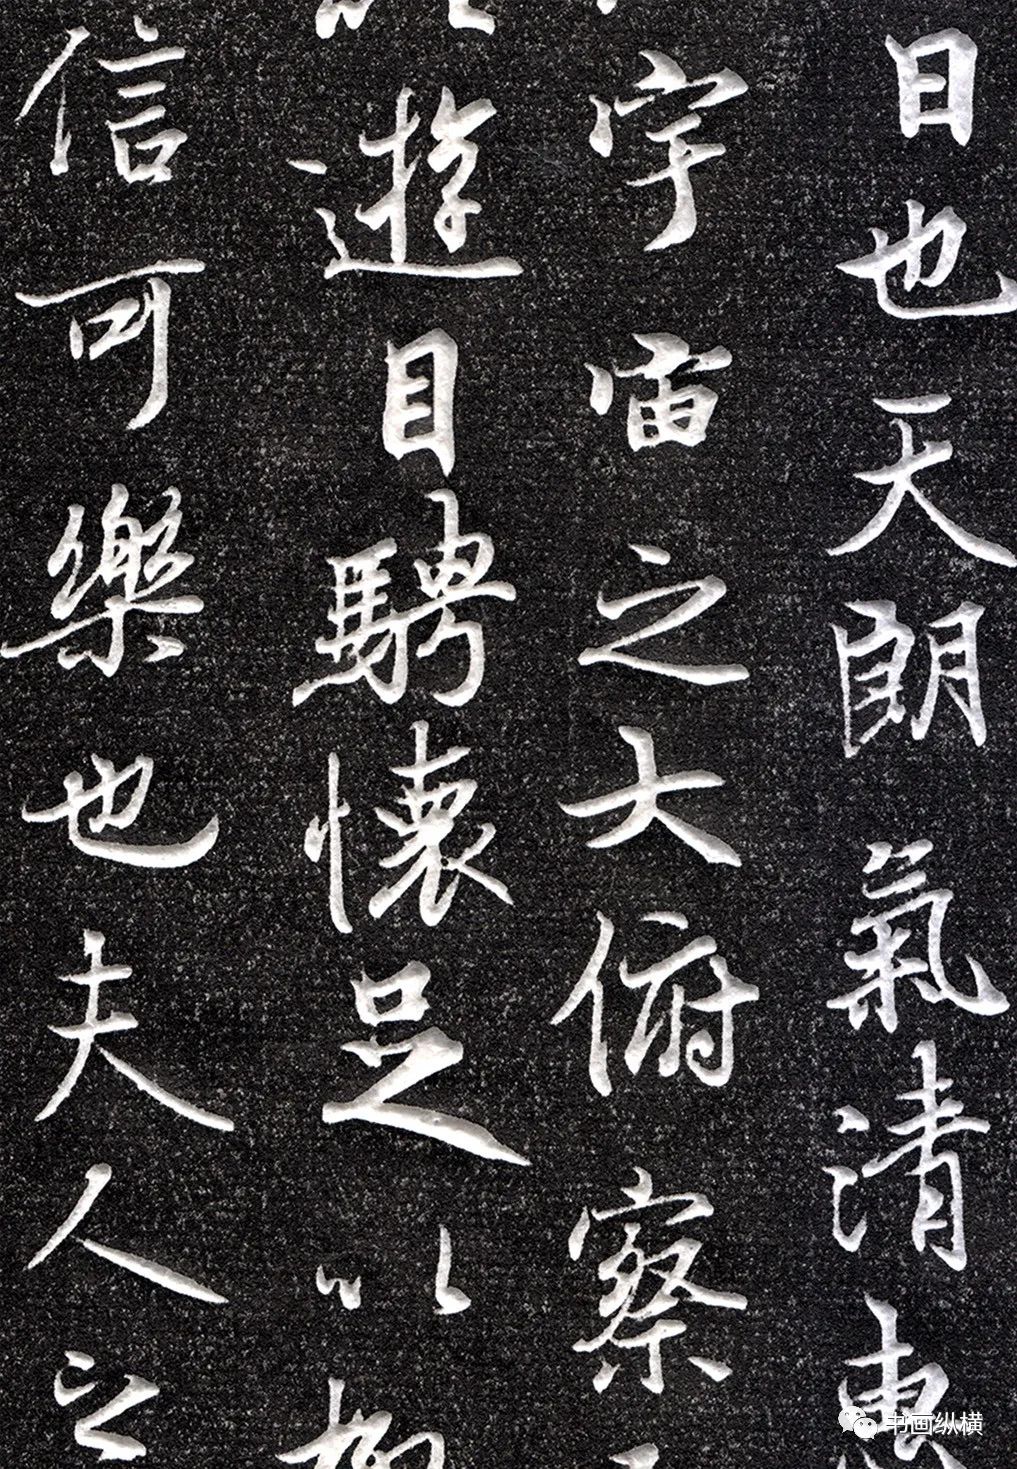 日也天朗氣清惠
宇宙之大俯察
遊目騁懷足以
信可樂也夫人之
书画纵横